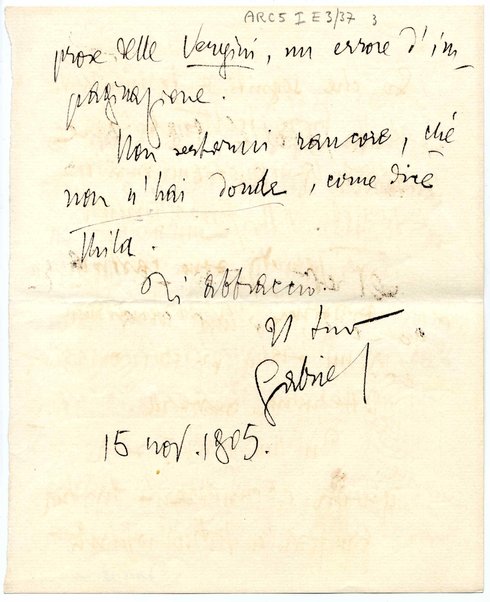 ARC5 I E 3/37 3
prose delle Vergini, un errore d'im-
paginazione.
Non serbarmi rancore, ché
non n'hai donde, come dice
Mila.
Ti abbraccio
Il tuo
Gabriel
15 nov. 1905.